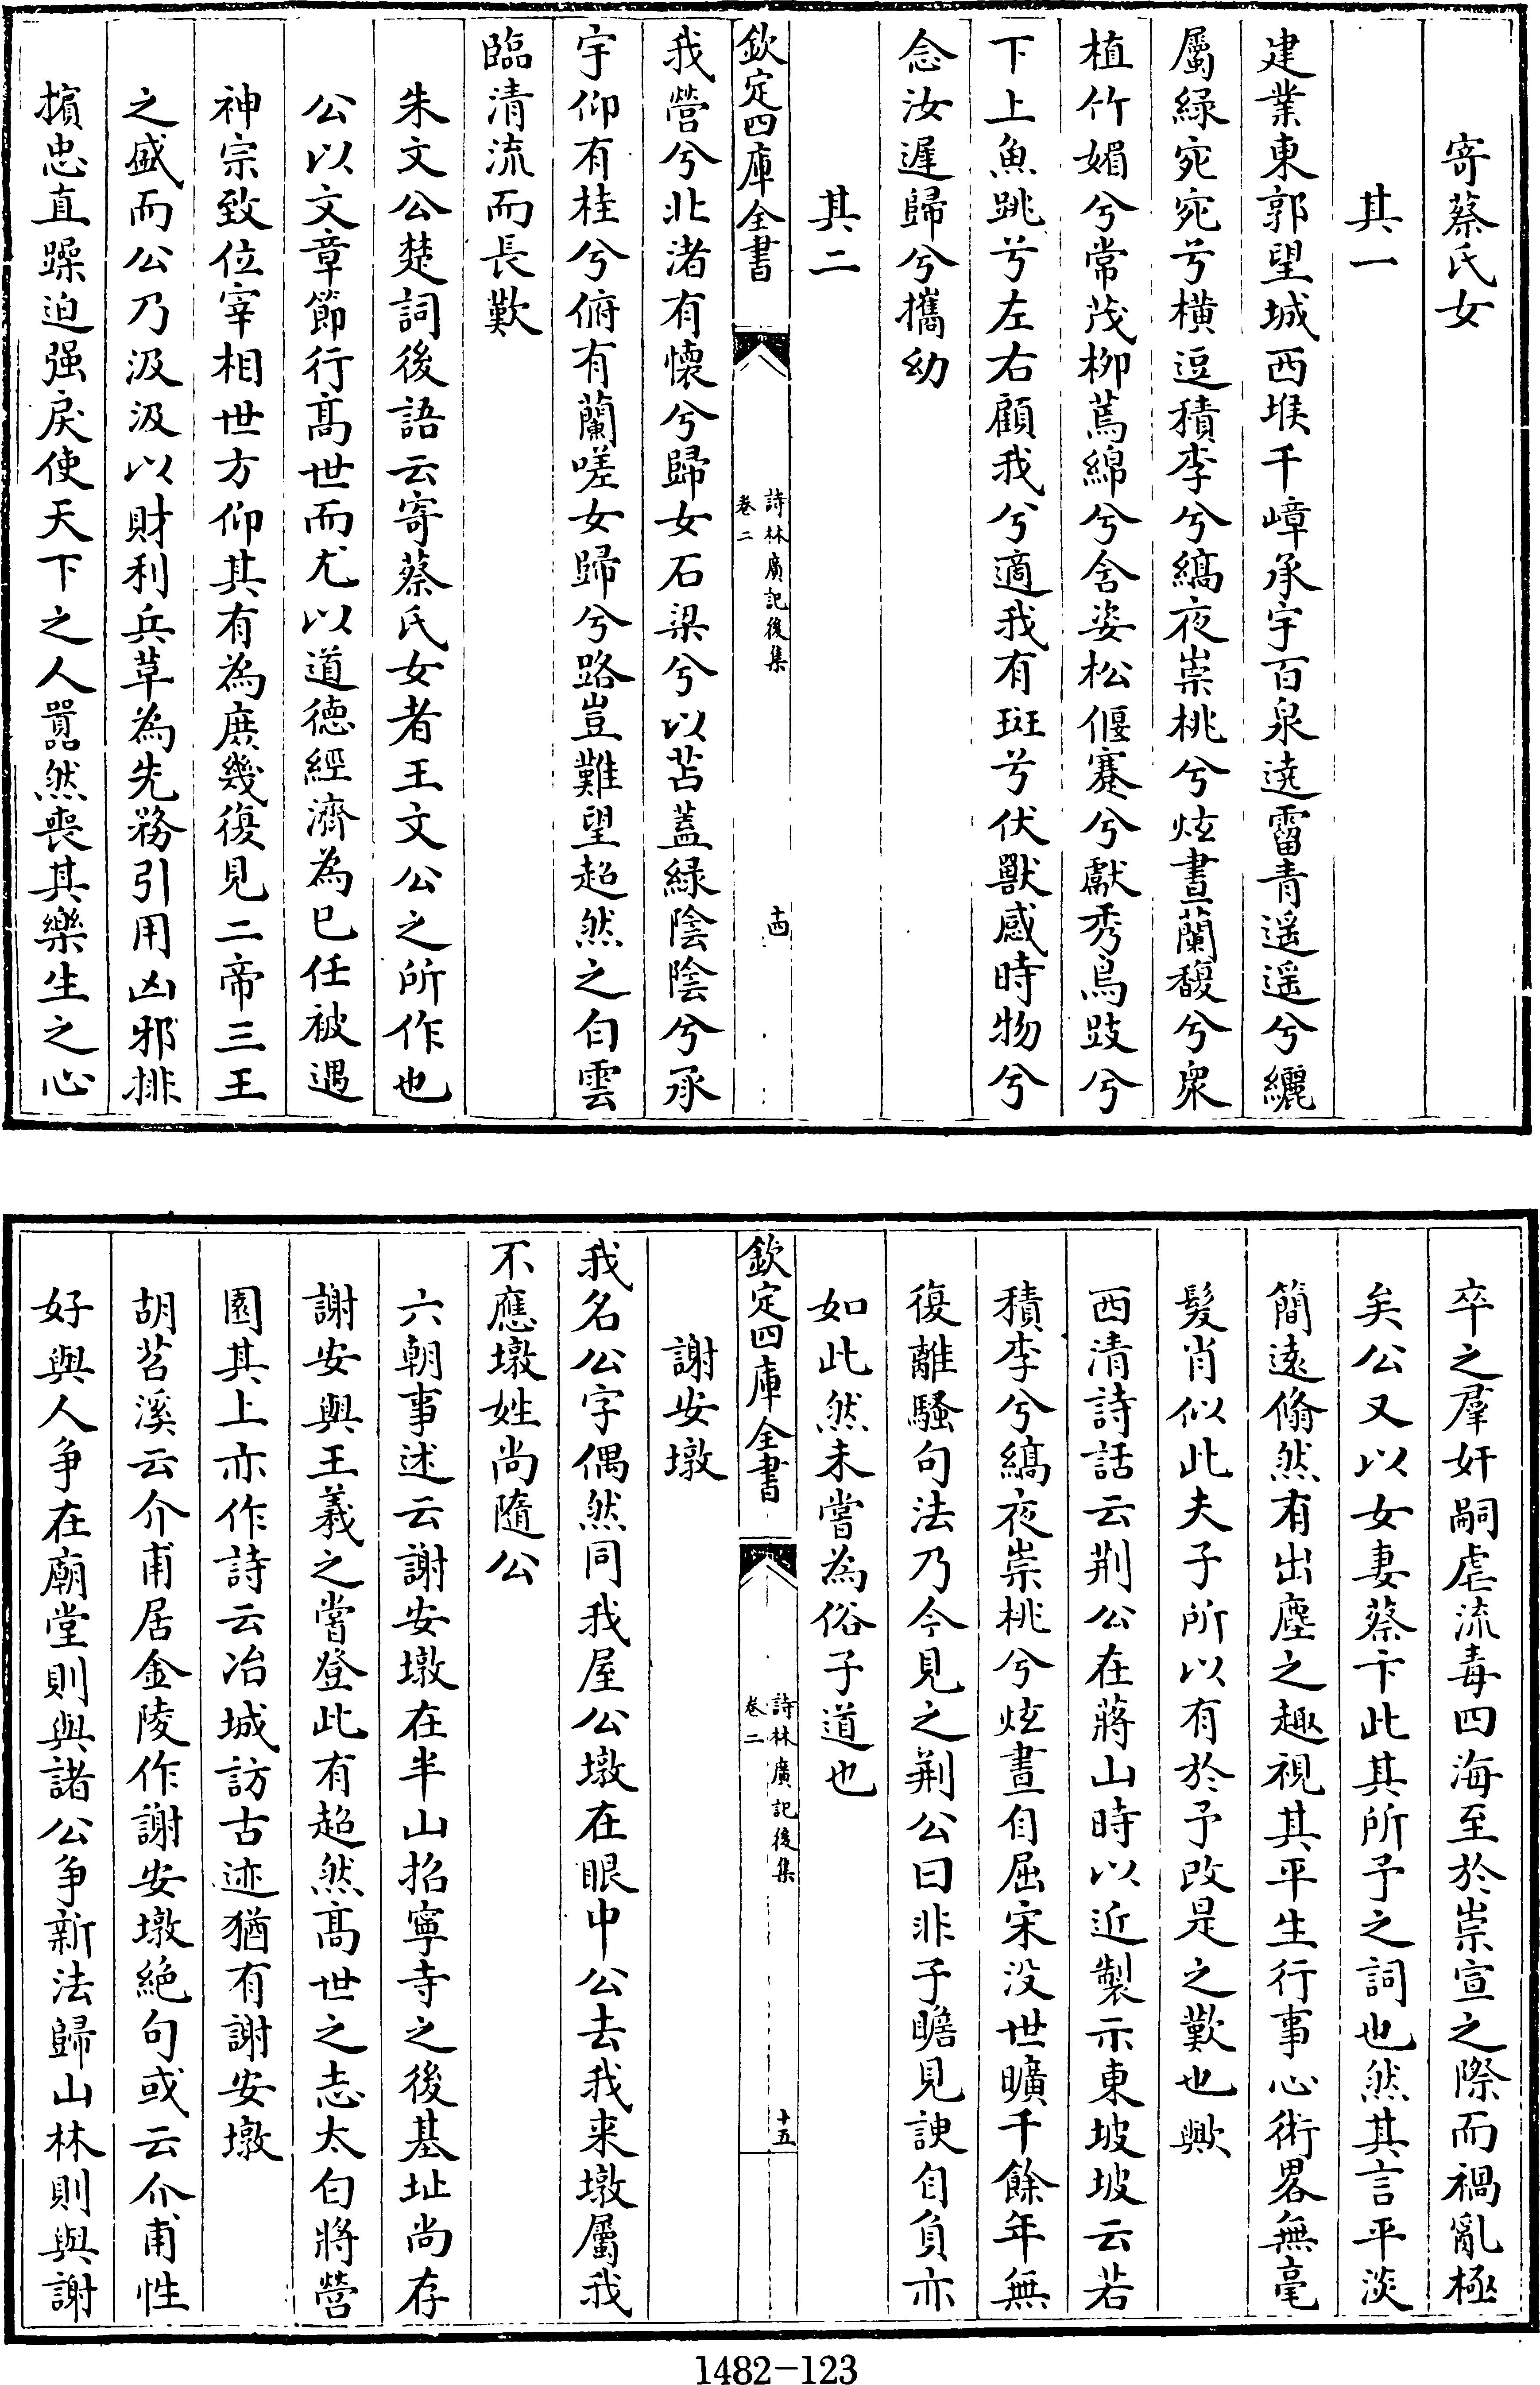 寄蔡氏女
其一
建業東郭望城西堠千嶂承宇百泉遶霤青遥遥兮纚
屬緑宛宛兮横逗積李兮縞夜崇桃兮炫晝蘭馥兮衆
植竹娟兮常茂栁蔫綿兮含姿松偃蹇兮獻秀鳥跂兮
下上魚跳兮左右顧我兮適我有斑兮伏獸感時物兮
念汝遲歸兮攜幼
其二
欽定四庫全書
詩林廣記後集
卷二
十四
我營兮北渚有懷兮歸女石梁兮以苫蓋緑陰陰兮承
宇仰有桂兮俯有蘭嗟女歸兮路豈難望超然之白雲
臨清流而長歎
朱文公楚詞後語云寄蔡氏女者王文公之所作也
公以文章節行髙世而尤以道德經濟為已任被遇
神宗致位宰相世方仰其有為庶幾復見二帝三王
之盛而公乃汲汲以財利兵草為先務引用凶邪排
擯忠直躁迫强戾使天下之人嚚然喪其樂生之心
卒之羣奸嗣虐流毒四海至於崇宣之際而禍亂極
矣公又以女妻蔡卞此其所予之詞也然其言平淡
簡遠翛然有出塵之趣視其平生行事心術畧無毫
髮肖似此夫子所以有於予改是之歎也歟
西清詩話云荆公在蔣山時以近製示東坡坡云若
積李兮縞夜崇桃兮炫晝自屈宋没世曠千餘年無
復離騷句法乃今見之荆公曰非子瞻見諛自負亦
如此然未嘗為俗子道也
欽定四庫全書
詩林廣記後集
卷二
十五
謝安墩
我名公字偶然同我屋公墩在眼中公去我来墩屬我
不應墩姓尚隨公
六朝事迹云謝安墩在半山招寧寺之後基址尚存
謝安與王羲之嘗登此有超然髙世之志太白將營
園其上亦作詩云冶城訪古迹猶有謝安墩
胡苕溪云介甫居金陵作謝安墩絶句或云介甫性
好與人爭在廟堂則與諸公爭新法歸山林則與謝
1482-123